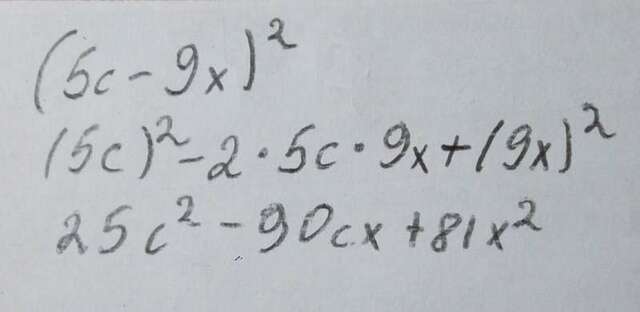 (5c - 9x)²
(5c)² - 2 · 5c · 9x + (9x)²
25c² - 90cx + 81x²